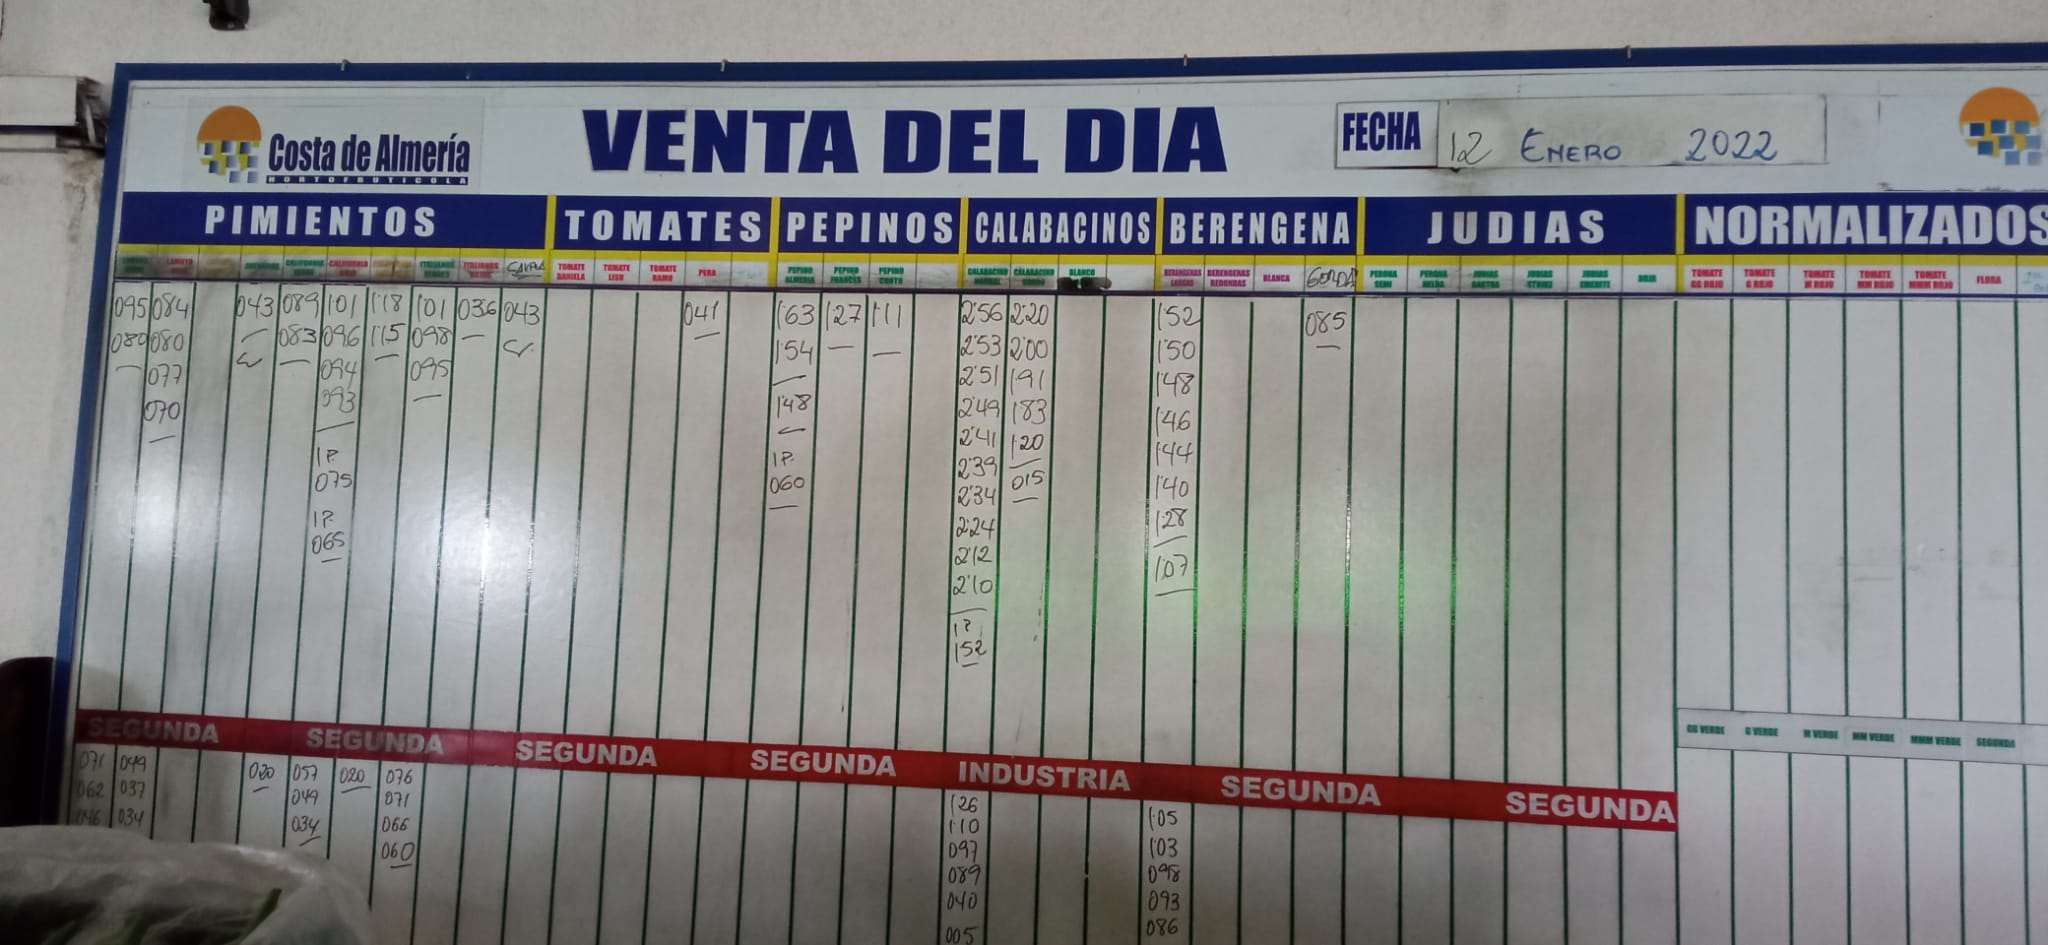 Costa de Almería
HORTOFRUTICOLA
VENTA DEL DIA
FECHA 12 ENERO 2022
PIMIENTOS TOMATES PEPINOS CALABACINOS BERENGENA JUDIAS NORMALIZADOS
CALIFORNIA CALIFORNIA ITALIANOS TOMATE DANIELA TOMATE LISO TOMATE RAMO PERA PEPINO ALMERIA PEPINO FRANCES PEPINO CORTO CALABACINO CALABACINO GORDO BLANCO BERENGENAS LARGAS BERENGENAS REDONDAS BLANCA GORDA PERONA SEMI PERONA JUDIAS JUDIAS STRIKE JUDIAS ROJA TOMATE GG ROJO TOMATE G ROJO TOMATE M ROJO TOMATE MM ROJO TOMATE MMM ROJO FLORA
095 084 043 089 1'01 1'18 1'01 036 043 041 1'63 1'27 1'11 2'56 2'20 1'52 085
080 080 083 096 1'15 098 1'54 2'53 2'00 1'50
077 094 095 2'51 1'91 1'48
070 093 1'48 2'49 1'83 1'46
2'41 1'20 1'44
1P. 1P. 2'39
075 060 2'34 015 1'40
1P. 2'24 1'28
065 2'12
2'10 1'07
1P
1'52
SEGUNDA SEGUNDA SEGUNDA SEGUNDA INDUSTRIA SEGUNDA SEGUNDA
GG VERDE G VERDE M VERDE MM VERDE MMM VERDE SEGUNDA
071 049 020 057 020 076 1'26 1'05
062 037 049 071 1'10 1'03
046 034 034 066 097 098
060 089 093
040 086
005